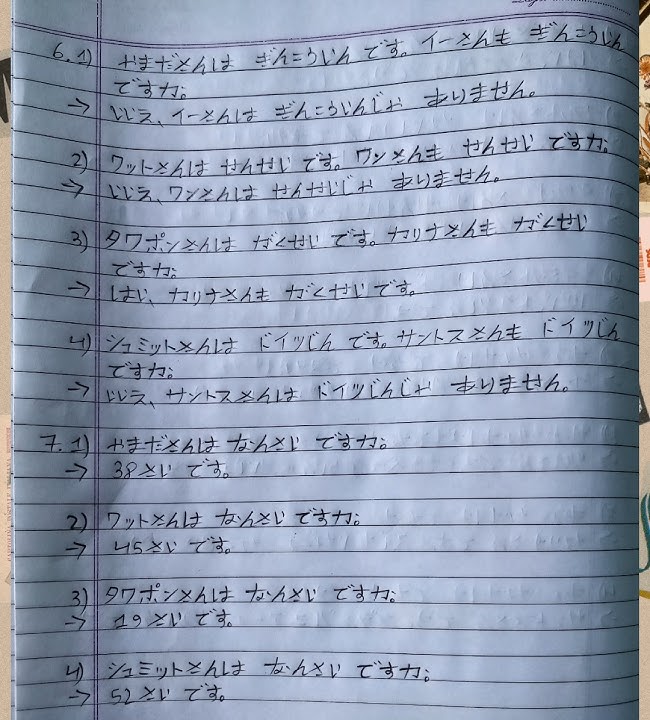 6. 1) やまださんは ぎんこういん です。イーさんも ぎんこういん
ですか。
→ いいえ、イーさんは ぎんこういんじゃ ありません。
2) ワットさんは せんせい です。ワンさんも せんせい ですか。
→ いいえ、ワンさんは せんせいじゃ ありません。
3) タワポンさんは がくせい です。カリナさんも がくせい
ですか。
→ はい、カリナさんも がくせいです。
4) シュミットさんは ドイツじん です。サントスさんも ドイツじん
ですか。
→ いいえ、サントスさんは ドイツじんじゃ ありません。
7. 1) やまださんは なんさい ですか。
→ 38さい です。
2) ワットさんは なんさい ですか。
→ 45さい です。
3) タワポンさんは なんさい ですか。
→ 19さい です。
4) シュミットさんは なんさい ですか。
→ 52さい です。